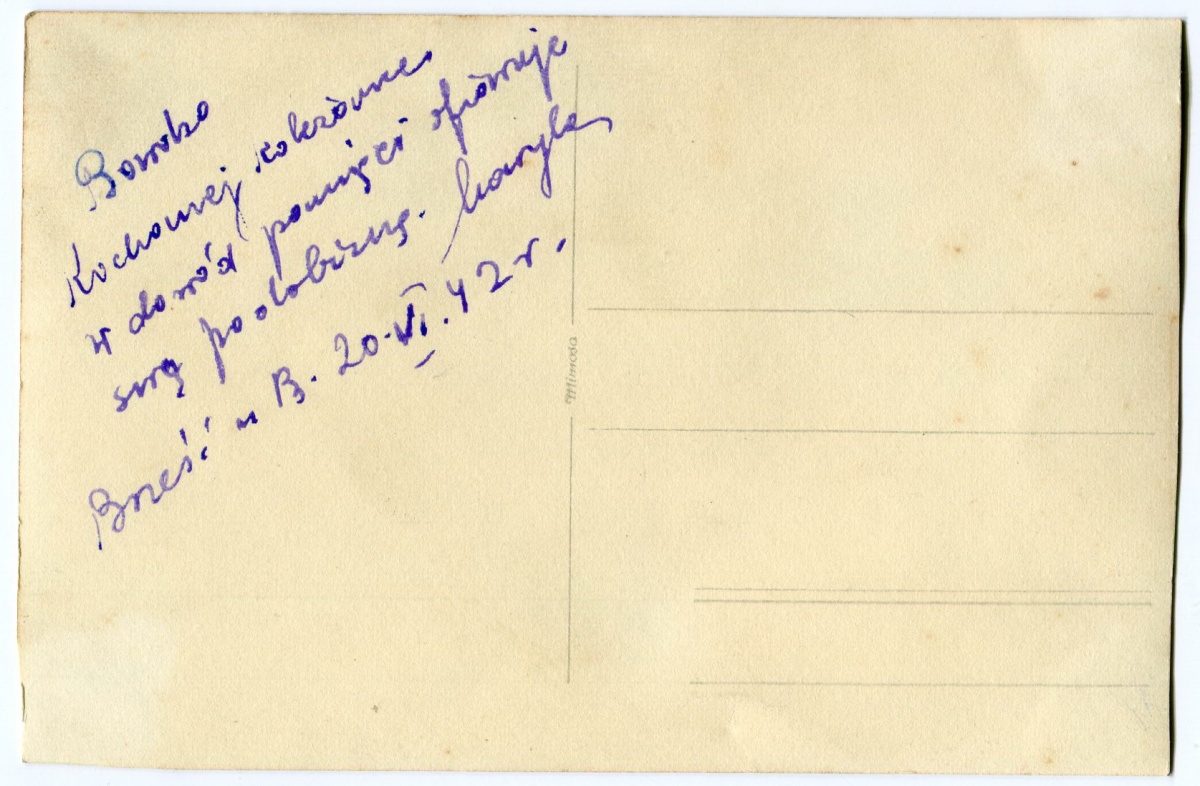 Bardzo
Kochanej koleżance
w dowód pamięci ofiaruje
swą podobiznę. Maryla
Brześć n B. 20.VI.42 r.
Mimosa